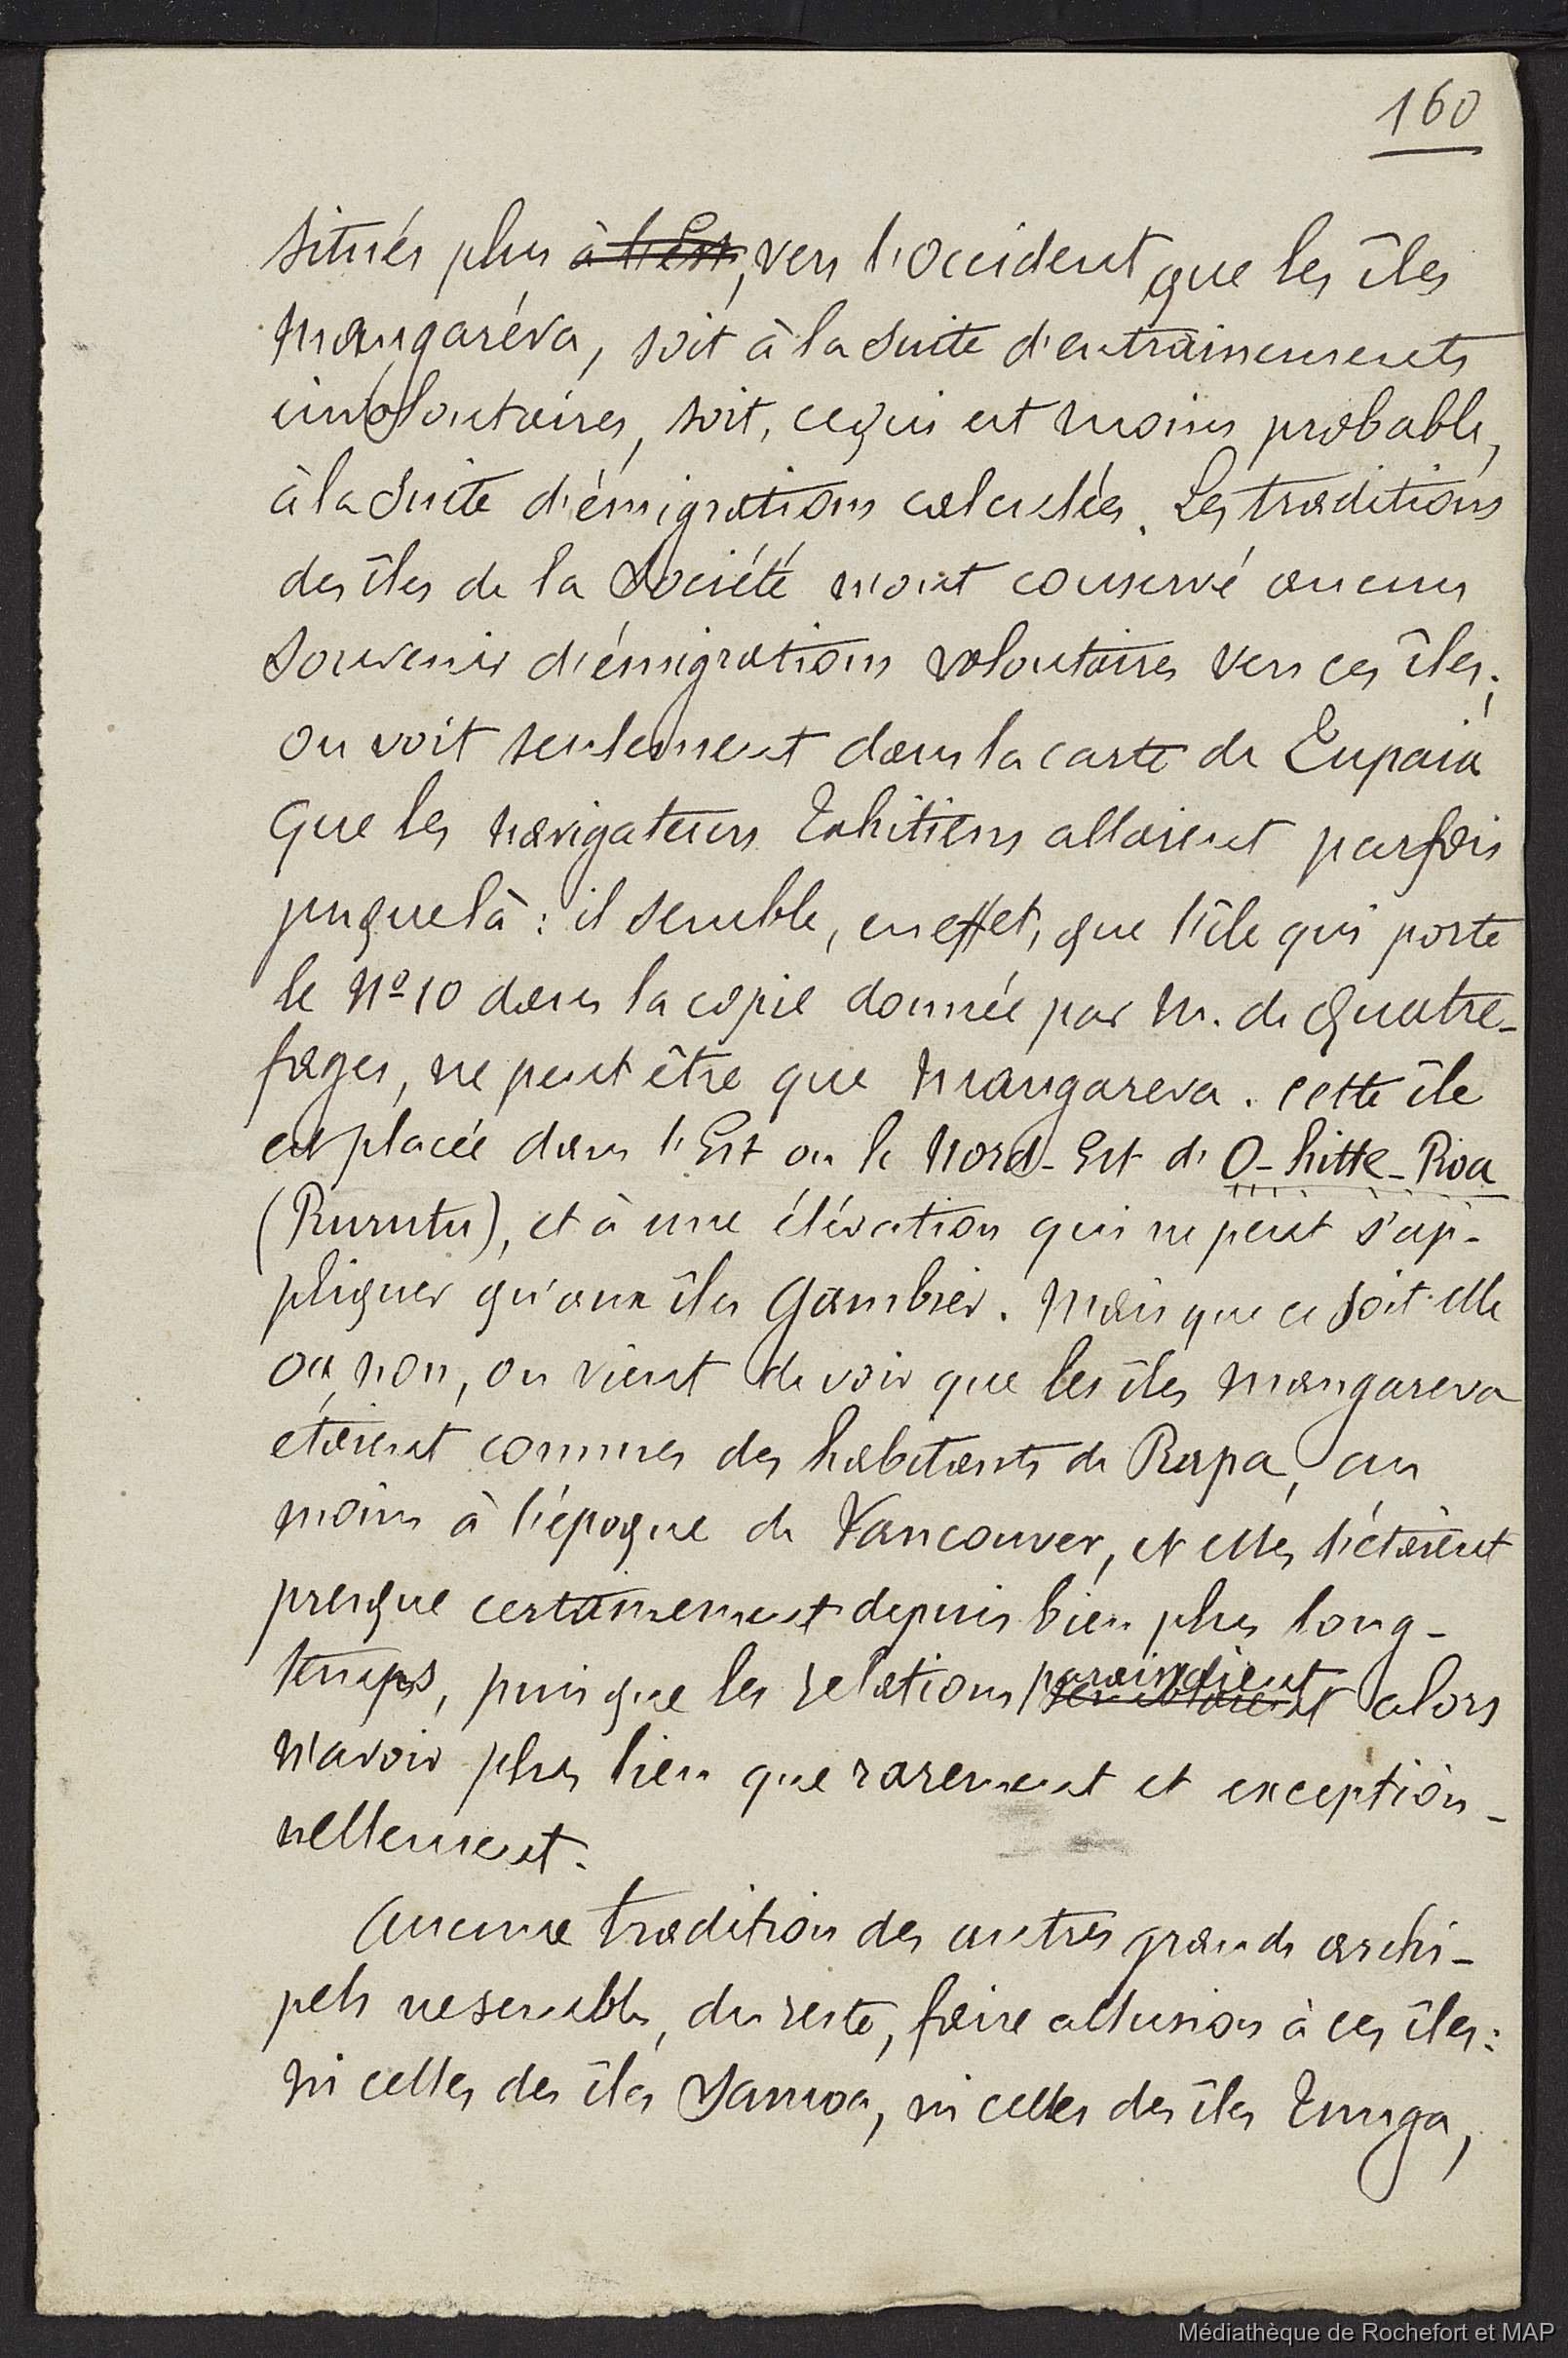 160
situés plus à l'Est, vers l'occident que les îles
Mangaréva, soit à la suite d'entrainements
involontaires, soit, ce qui est moins probable,
à la suite d'émigrations calculées. Les traditions
des îles de la Société n'ont conservé aucun
souvenir d'émigrations volontaires vers ces îles;
on voit seulement dans la carte de Tupaia
que les navigateurs Tahitiens allaient parfois
jusque là : il semble, en effet, que l'île qui porte
le No 10 dans la copie donnée par M. de Quatre-
fages, ne peut être que Mangareva. Cette île
est placée dans l'Est ou le Nord-Est d'O-hitte-Roa
(Rurutu), et à une élévation qui ne peut s'ap-
pliquer qu'aux îles Gambier. Mais que ce soit elle
ou non, on vient de voir que les îles Mangareva
étaient connues des habitants de Rapa, au
moins à l'époque de Vancouver, et elles l'étaient
presque certainement depuis bien plus long-
temps, puisque les relations paraissaient alors
n'avoir plus lieu que rarement et exception-
nellement.
Aucune tradition des autres grands archi-
pels ne semble, du reste, faire allusion à ces îles:
ni celles des îles Samoa, ni celles des îles Tunga,
Médiathèque de Rochefort et MAP